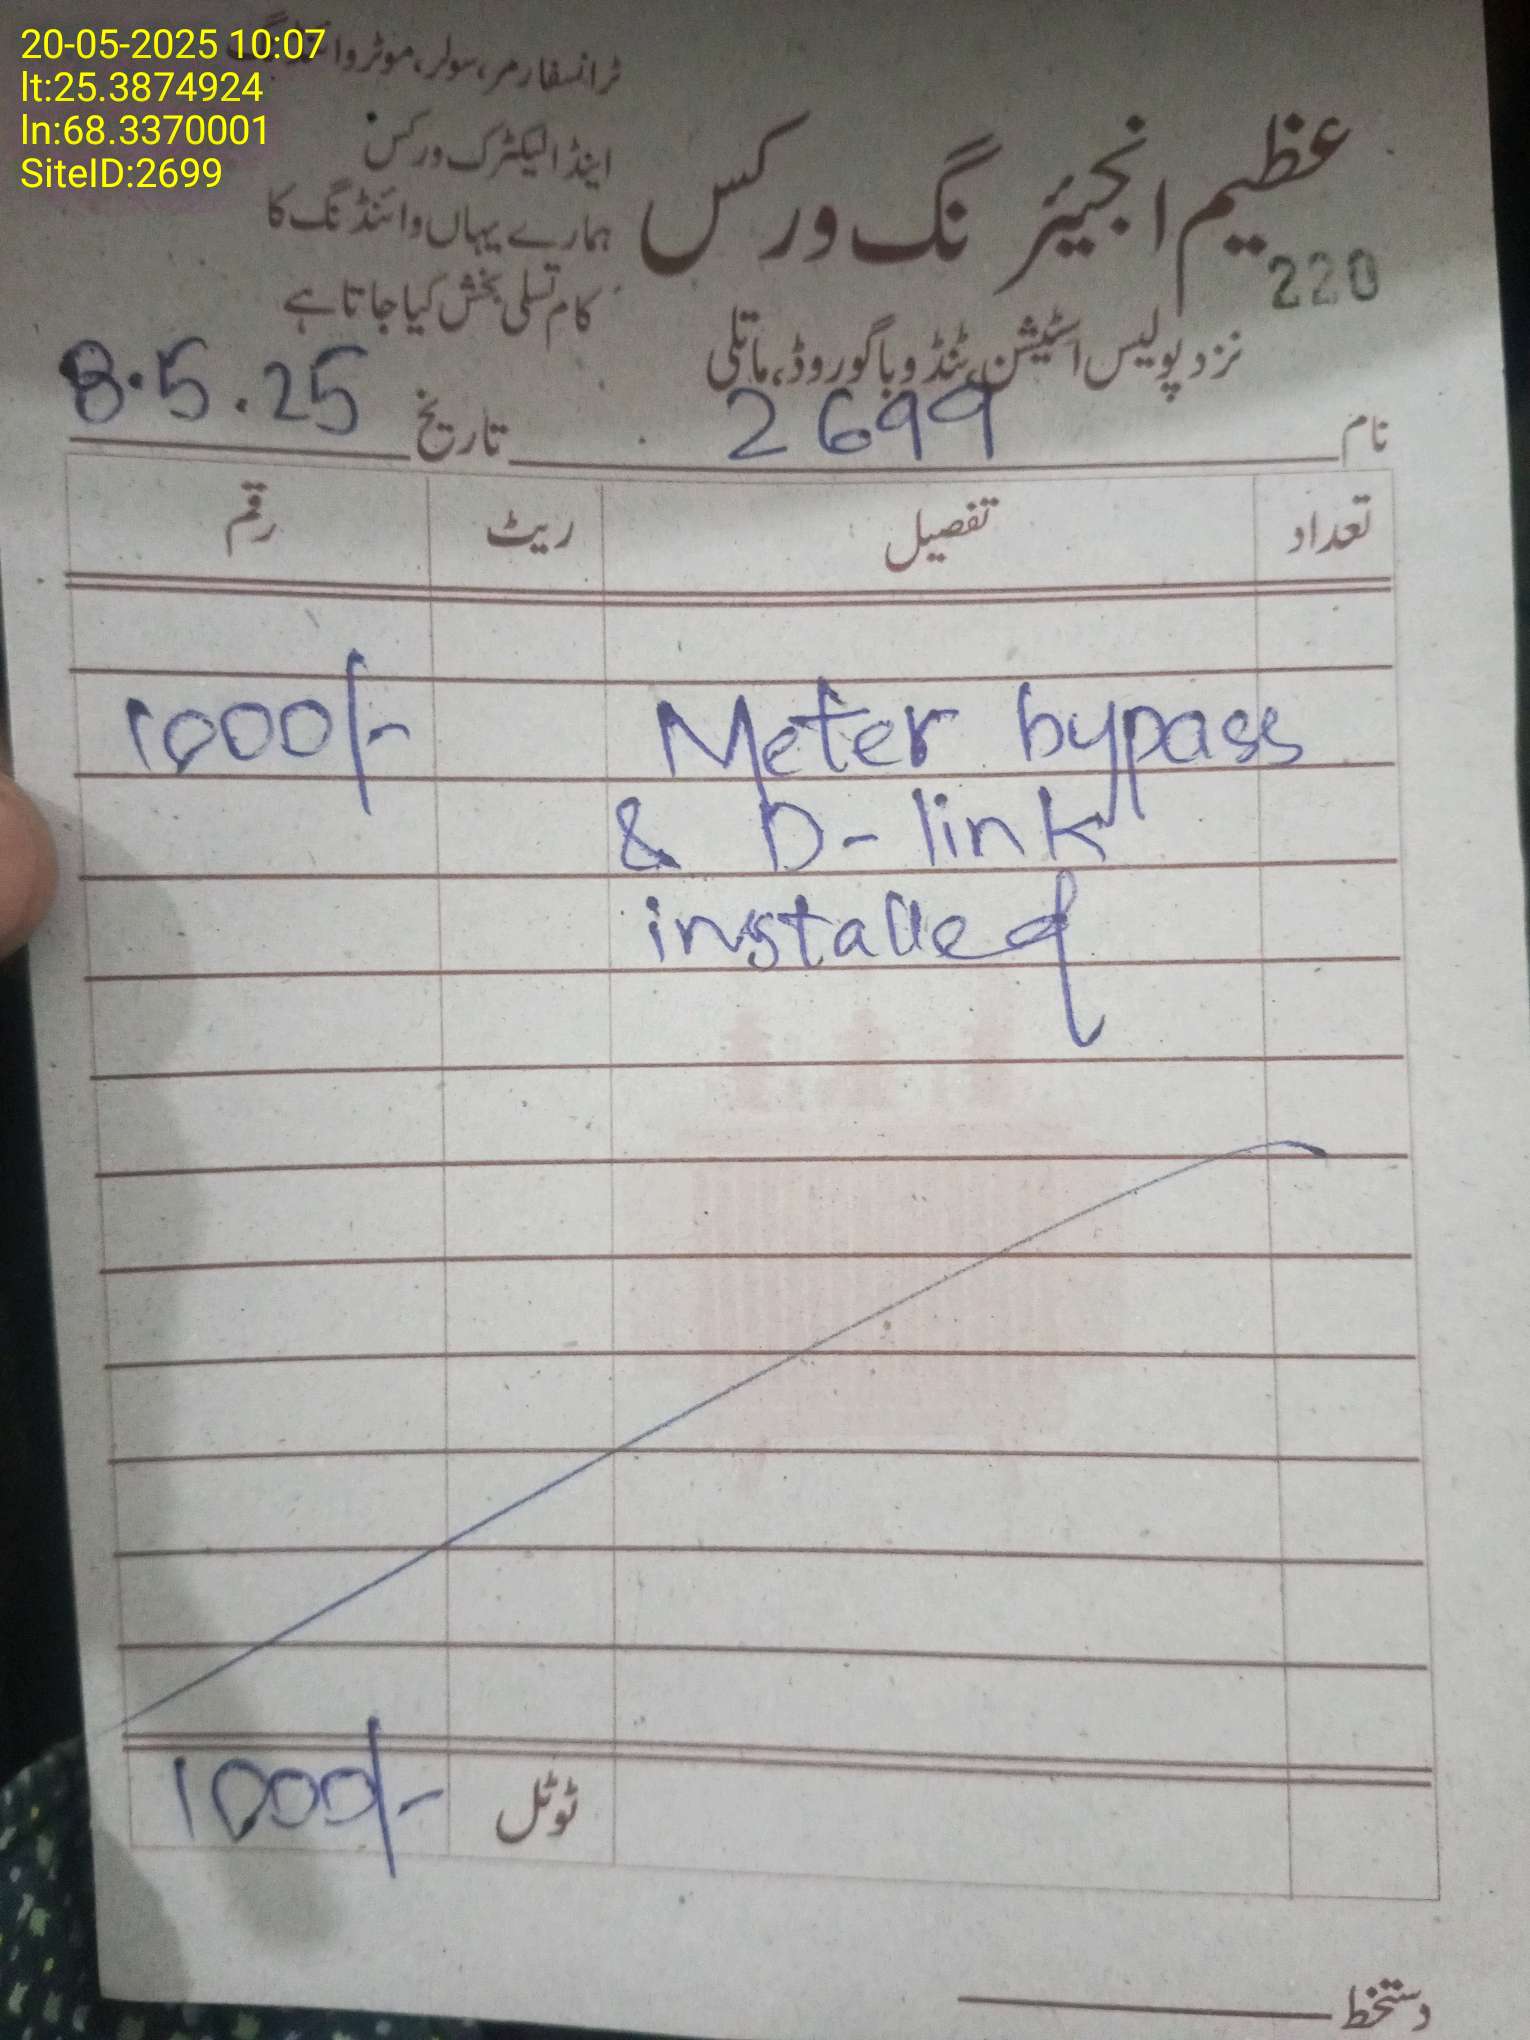 20-05-2025 10:07
lt:25.3874924
ln:68.3370001
SiteID:2699
ٹرانسفارمر، سولر، موٹر وائنڈنگ
اینڈ الیکٹرک ورکس
ہمارے یہاں وائنڈنگ کا
کام تسلی بخش کیا جاتا ہے
عظیم انجیئرنگ ورکس
220
نزد پولیس اسٹیشن، ٹنڈو باگو روڈ، ماتلی
نام 2699 تاریخ 8.5.25
تعداد تفصیل ریٹ رقم
Meter bypass 1000/-
& D-link
installed
ٹوٹل 1000/-
دستخط